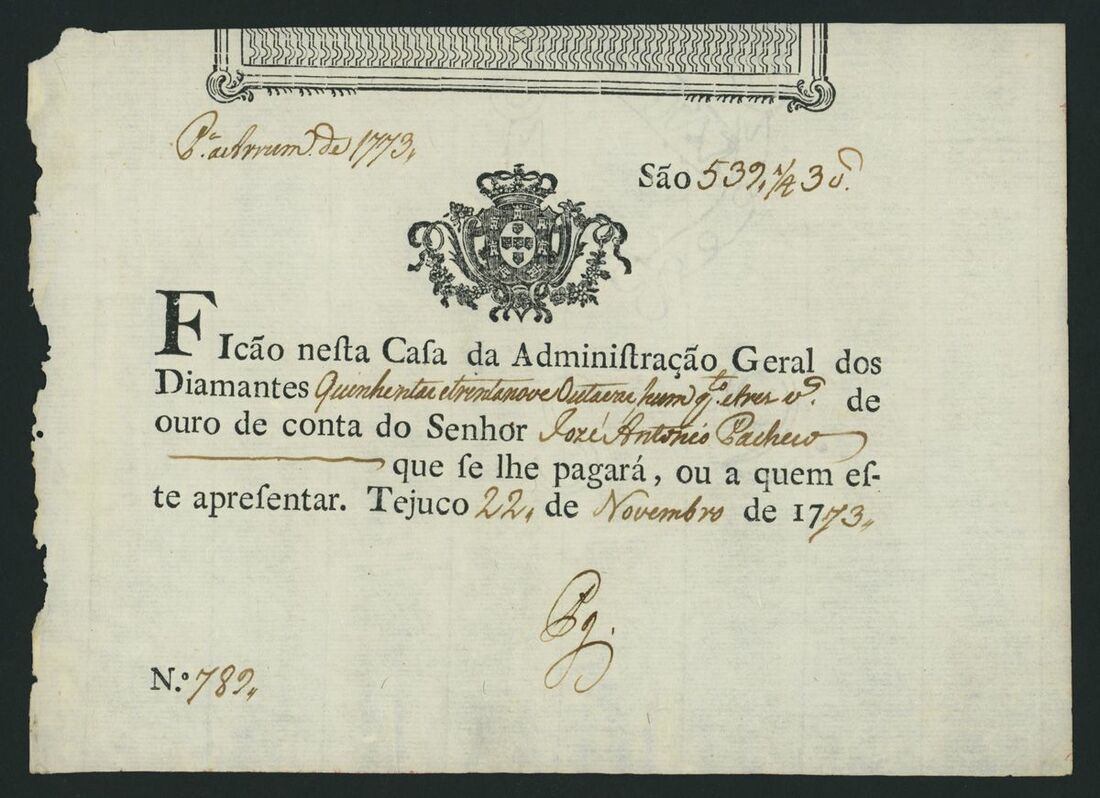 P.ª a Arrum.ᵐ de 1773,,
São 539,, 1/4 3 v.ˢ
FIcão neſta Caſa da Adminiſtração Geral dos
Diamantes Quinhentas e trinta nove Outavas hum q.ᵗᵒ e tres v.ˢ de
ouro de conta do Senhor Jozé António Pacheco
que ſe lhe pagará, ou a quem eſ-
te apreſentar. Tejuco 22,, de Novembro de 1773,,
Pg.
N.º 789,,